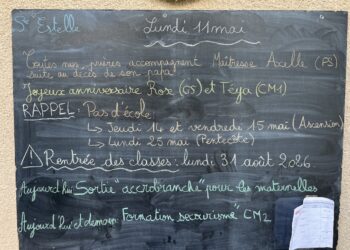 Ste Estelle
Lundi 11 mai
Toutes nos prières accompagnent Maîtresse Axelle (PS)
suite au décès de son papa.
Joyeux anniversaire Rose (GS) et Téya (CM1)
RAPPEL: Pas d'école:
↳ Jeudi 14 et vendredi 15 mai (Ascension)
↳ Lundi 25 mai (Pentecôte)
⚠ Rentrée des classes: lundi 31 août 2026
Aujourd'hui Sortie "accrobranche" pour les maternelles
Aujourd'hui et demain Formation "secourisme" CM2